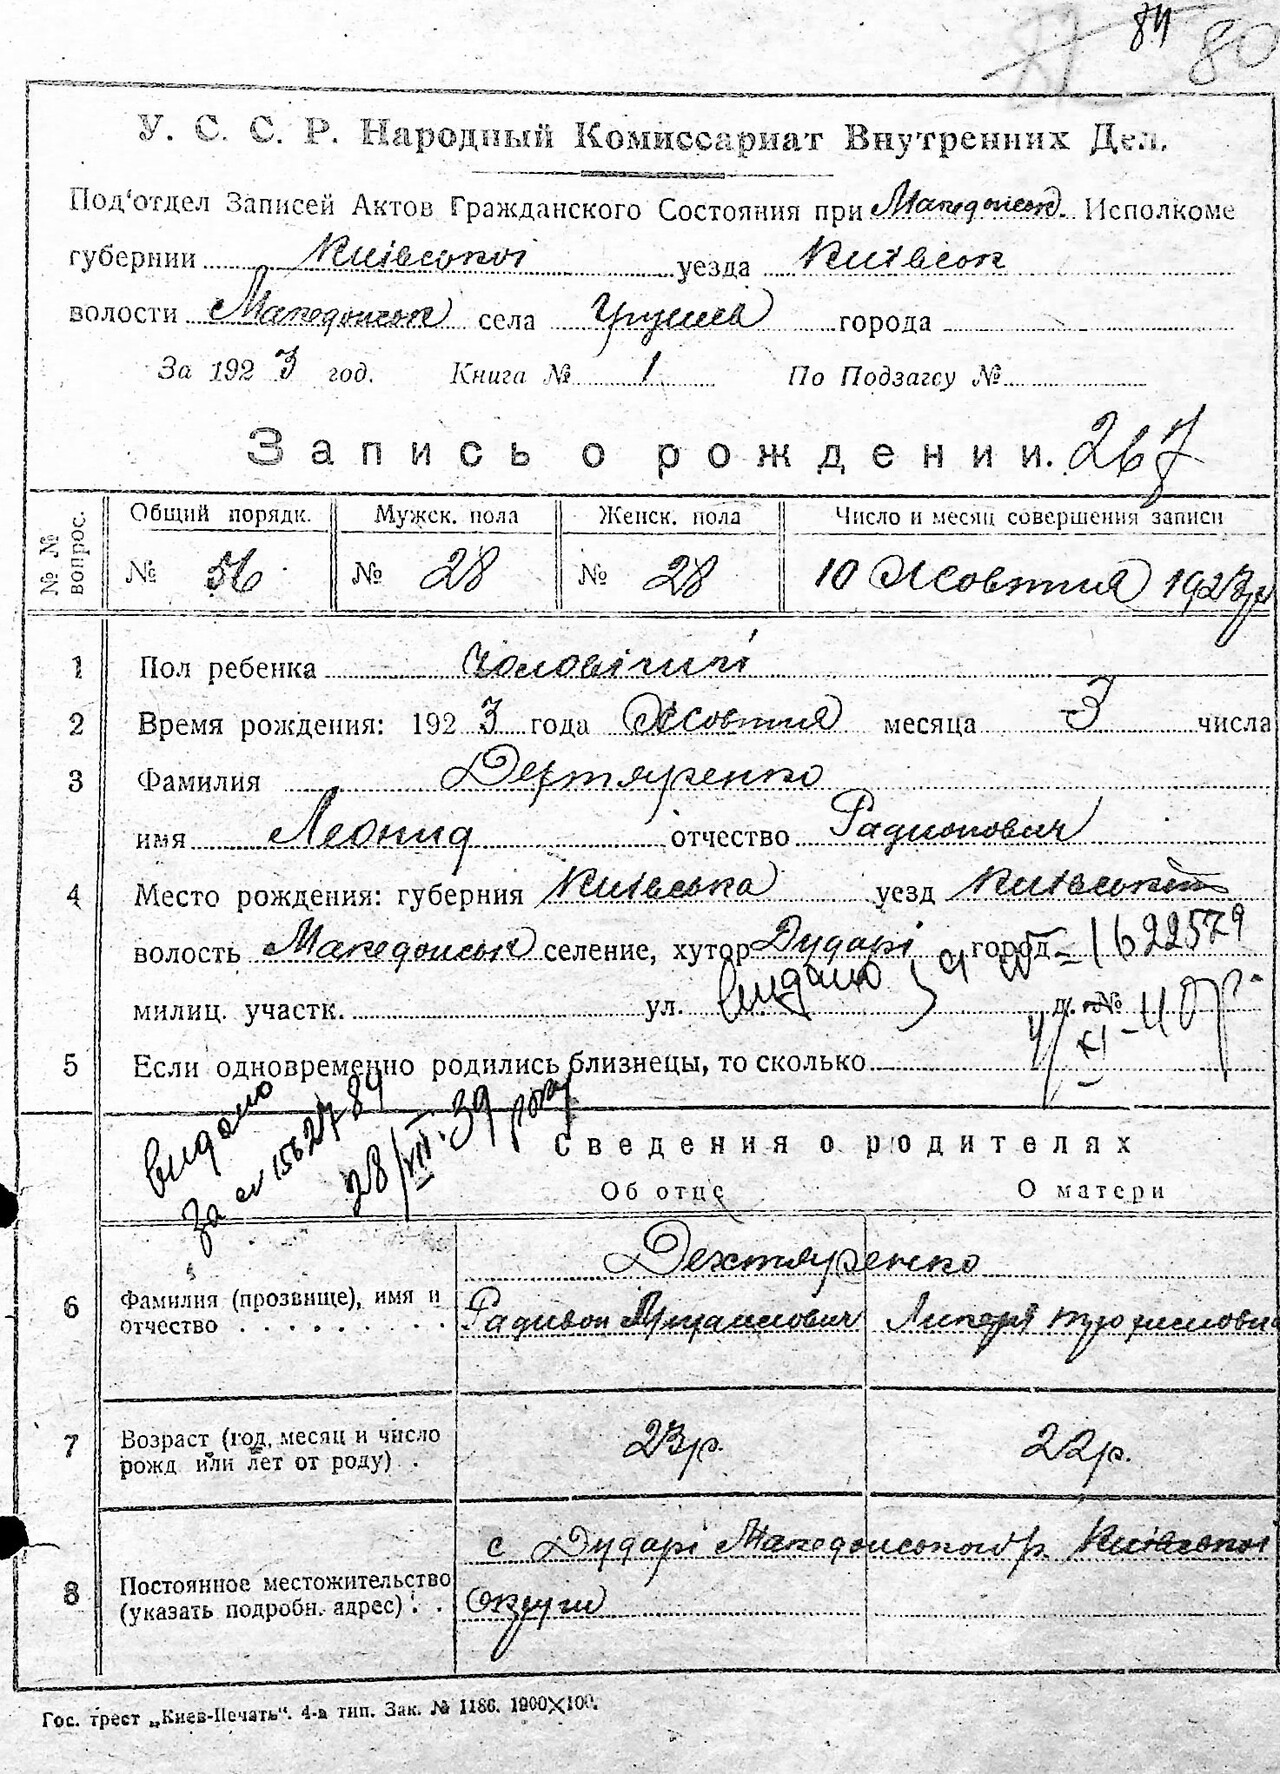 84 80
У. С. С. Р. Народный Комиссариат Внутренних Дел.
Под'отдел Записей Актов Гражданского Состояния при Македонськ. Исполкоме
губернии Київської уезда Київськ
волости Македонськ села Грушев города
За 1923 год. Книга № 1 По Подзагсу №
Запись о рождении. 267
№ № вопрос.
Общий порядк. Мужск. пола Женск. пола Число и месяц совершения записи
№ 56 № 28 № 28 10 Жовтня 1923 р
1 Пол ребенка Чоловічий
2 Время рождения: 1923 года Жовтня месяца 3 числа
3 Фамилия Дехтяренко
имя Леонид отчество Радионович
4 Место рождения: губерния Київська уезд Київський
волость Македонськ селение, хутор Дударі город
видано 1622579
милиц. участк. ул. д. №
4/XI-40р.
5 Если одновременно родились близнецы, то сколько
видано
за 1562789
28/VIII.39 року
Сведения о родителях
Об отце О матери
Дехтяренко
6 Фамилия (прозвище), имя и отчество Радивон
7 Возраст (год, месяц и число рожд или лет от роду) 23р. 22р.
с Дударі Македонського р. Київської
8 Постоянное местожительство (указать подробн. адрес) округи
Гос. трест „Киев-Печать“. 4-я тип. Зак. № 1186. 1900×100.